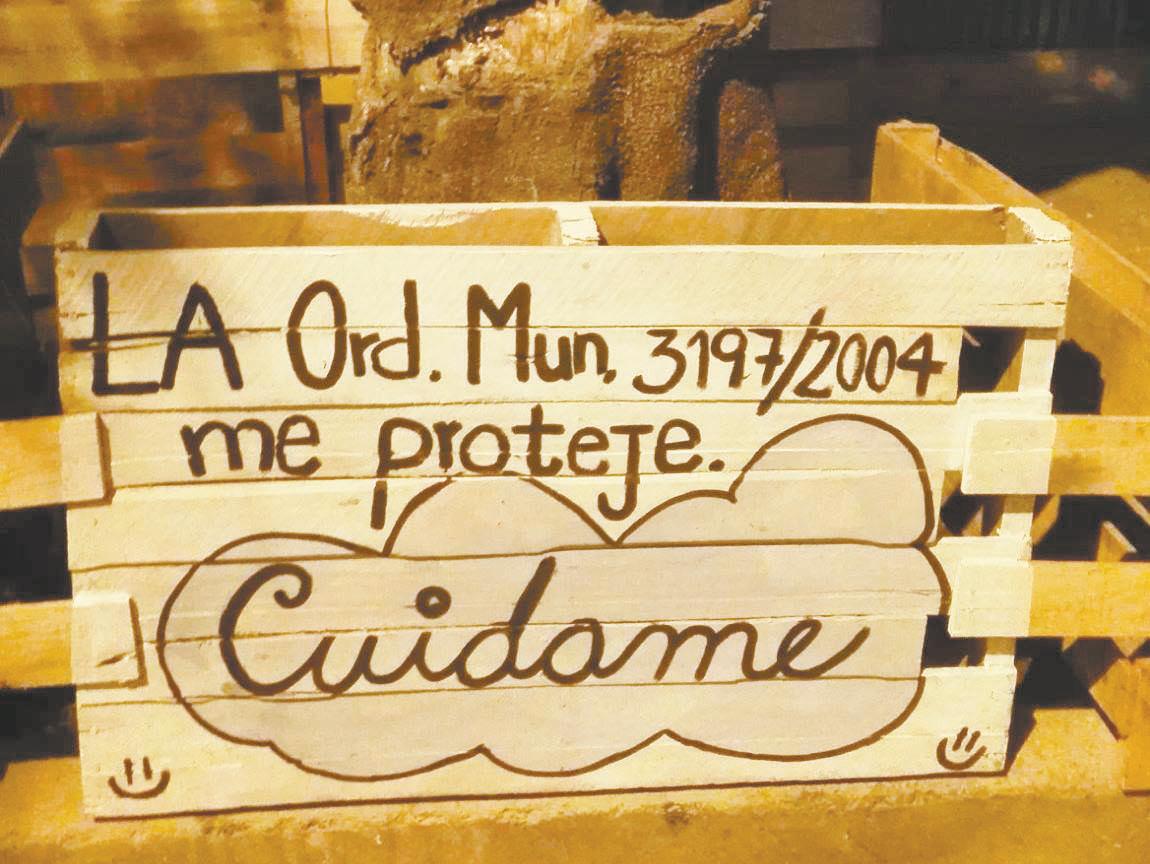 LA Ord. Mun. 3197/2004
me proteje.
Cuidame